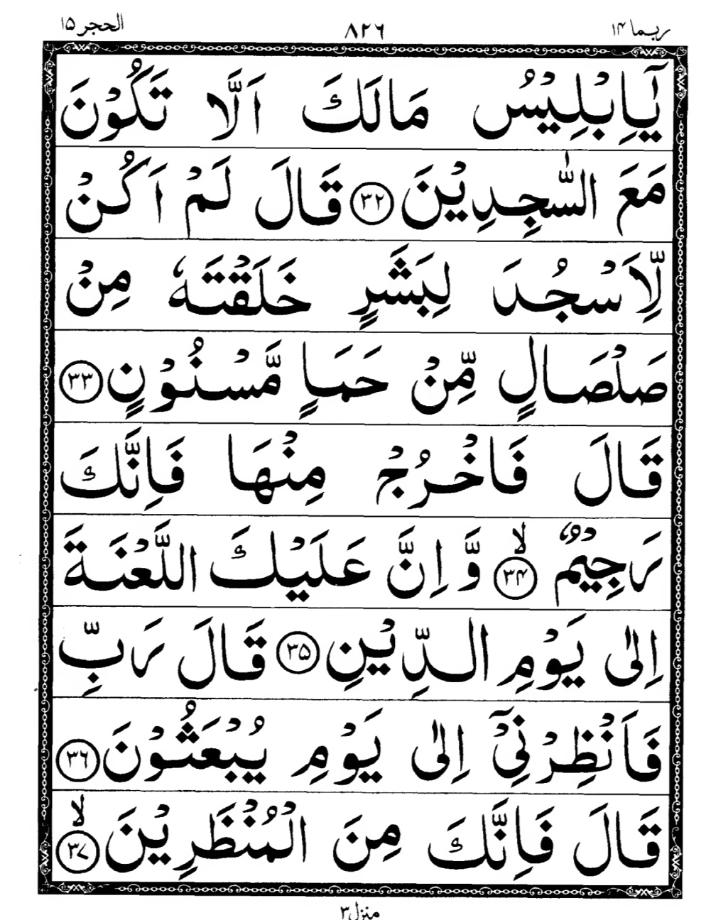 ربما ۱۴
۸۲۶
الحجر ۱۵
يٰٓاِبْلِيْسُ مَالَكَ اَلَّا تَكُوْنَ
مَعَ السّٰجِدِيْنَ ۳۲ قَالَ لَمْ اَكُنْ
لِّاَسْجُدَ لِبَشَرٍ خَلَقْتَهٗ مِنْ
صَلْصَالٍ مِّنْ حَمَاٍ مَّسْنُوْنٍ ۳۳
قَالَ فَاخْرُجْ مِنْهَا فَاِنَّكَ
رَجِيْمٌ ۙ ۳۴ وَّ اِنَّ عَلَيْكَ اللَّعْنَةَ
اِلٰى يَوْمِ الدِّيْنِ ۳۵ قَالَ رَبِّ
فَاَنْظِرْنِيْٓ اِلٰى يَوْمِ يُبْعَثُوْنَ ۳۶
قَالَ فَاِنَّكَ مِنَ الْمُنْظَرِيْنَ ۙ ۳۷
منزل ۳